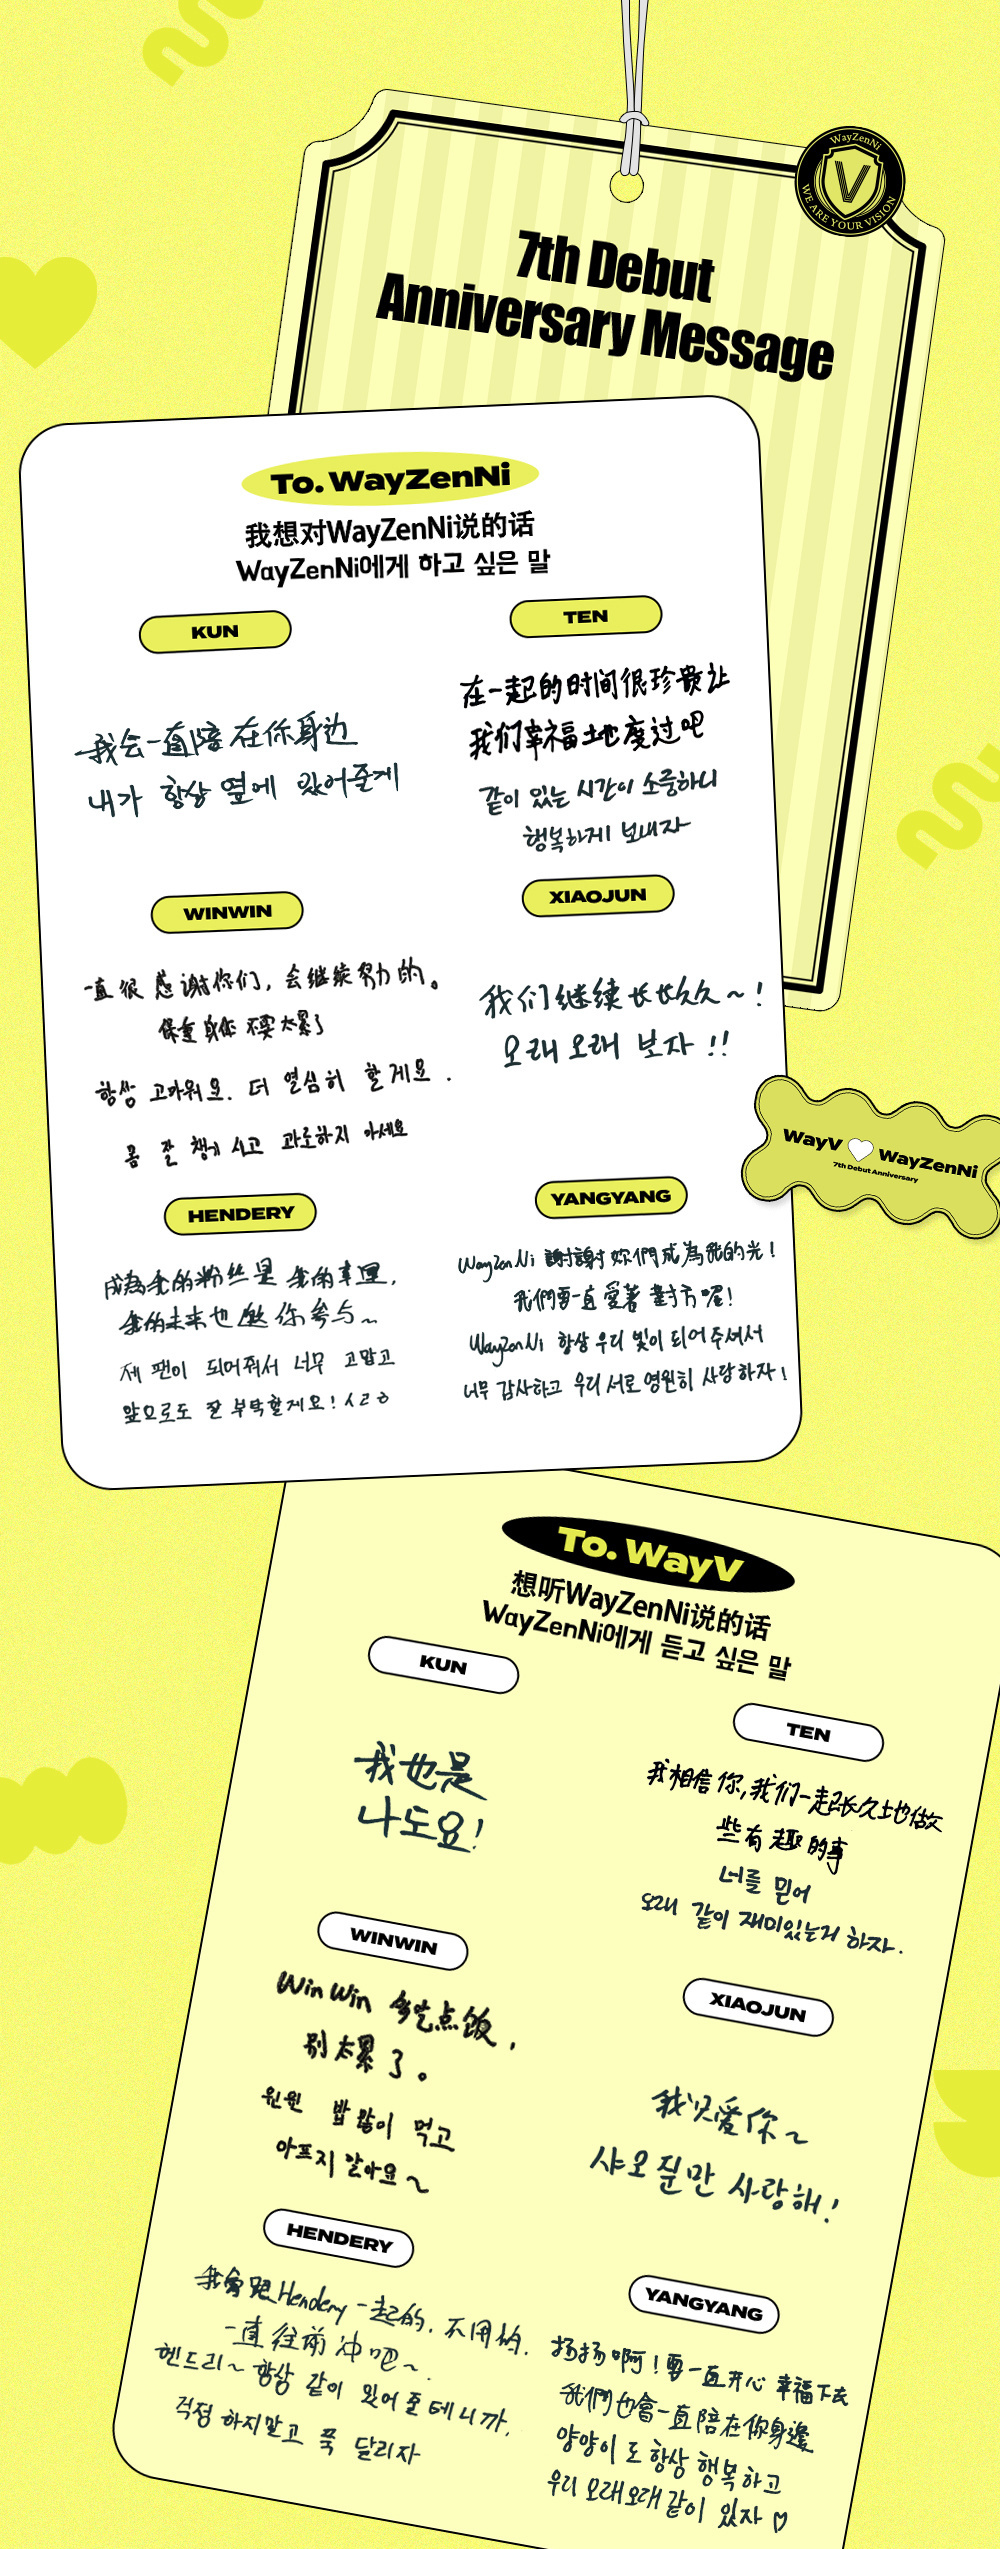 WayZenNi
WE ARE YOUR VISION
7th Debut
Anniversary Message
To. WayZenNi
我想对WayZenNi说的话
WayZenNi에게 하고 싶은 말
KUN
我会一直陪在你身边
내가 항상 옆에 있어줄게
TEN
在一起的时间很珍贵让
我们幸福地度过吧
같이 있는 시간이 소중하니
행복하게 보내자
WINWIN
一直很感谢你们, 会继续努力的。
保重身体 不要太累了
항상 고마워요. 더 열심히 할게요.
몸 잘 챙기시고 과로하지 마세요
XIAOJUN
我们继续长长久久~!
오래오래 보자!!
HENDERY
成為我的粉丝是我的幸運,
我的未来也邀你参与~
제 팬이 되어줘서 너무 고맙고
앞으로도 잘 부탁할게요!
YANGYANG
WayZenNi 謝謝妳們成為我的光!
我們要一直愛著對方喔!
WayZenNi 항상 우리 빛이 되어주셔서
너무 감사하고 우리 서로 영원히 사랑하자!
WayV WayZenNi
7th Debut Anniversary
To. WayV
想听WayZenNi说的话
WayZenNi에게 듣고 싶은 말
KUN
我也是
나도요!
TEN
我相信你,我们一起长久地做
些有趣的事
너를 믿어
오래 같이 재미있는거 하자.
WINWIN
WinWin 多吃点饭,
别太累了。
윈윈 밥 많이 먹고
아프지 말아요~
XIAOJUN
我只爱你~
샤오쥔만 사랑해!
HENDERY
我會跟Hendery一起的. 不用怕.
一直往前冲吧~.
헨드리~ 항상 같이 있어줄테니까.
걱정하지말고 쭉 달리자
YANGYANG
扬扬啊!要一直开心幸福下去
我們也會一直陪在你身邊
양양이도 항상 행복하고
우리 오래오래 같이 있자♡